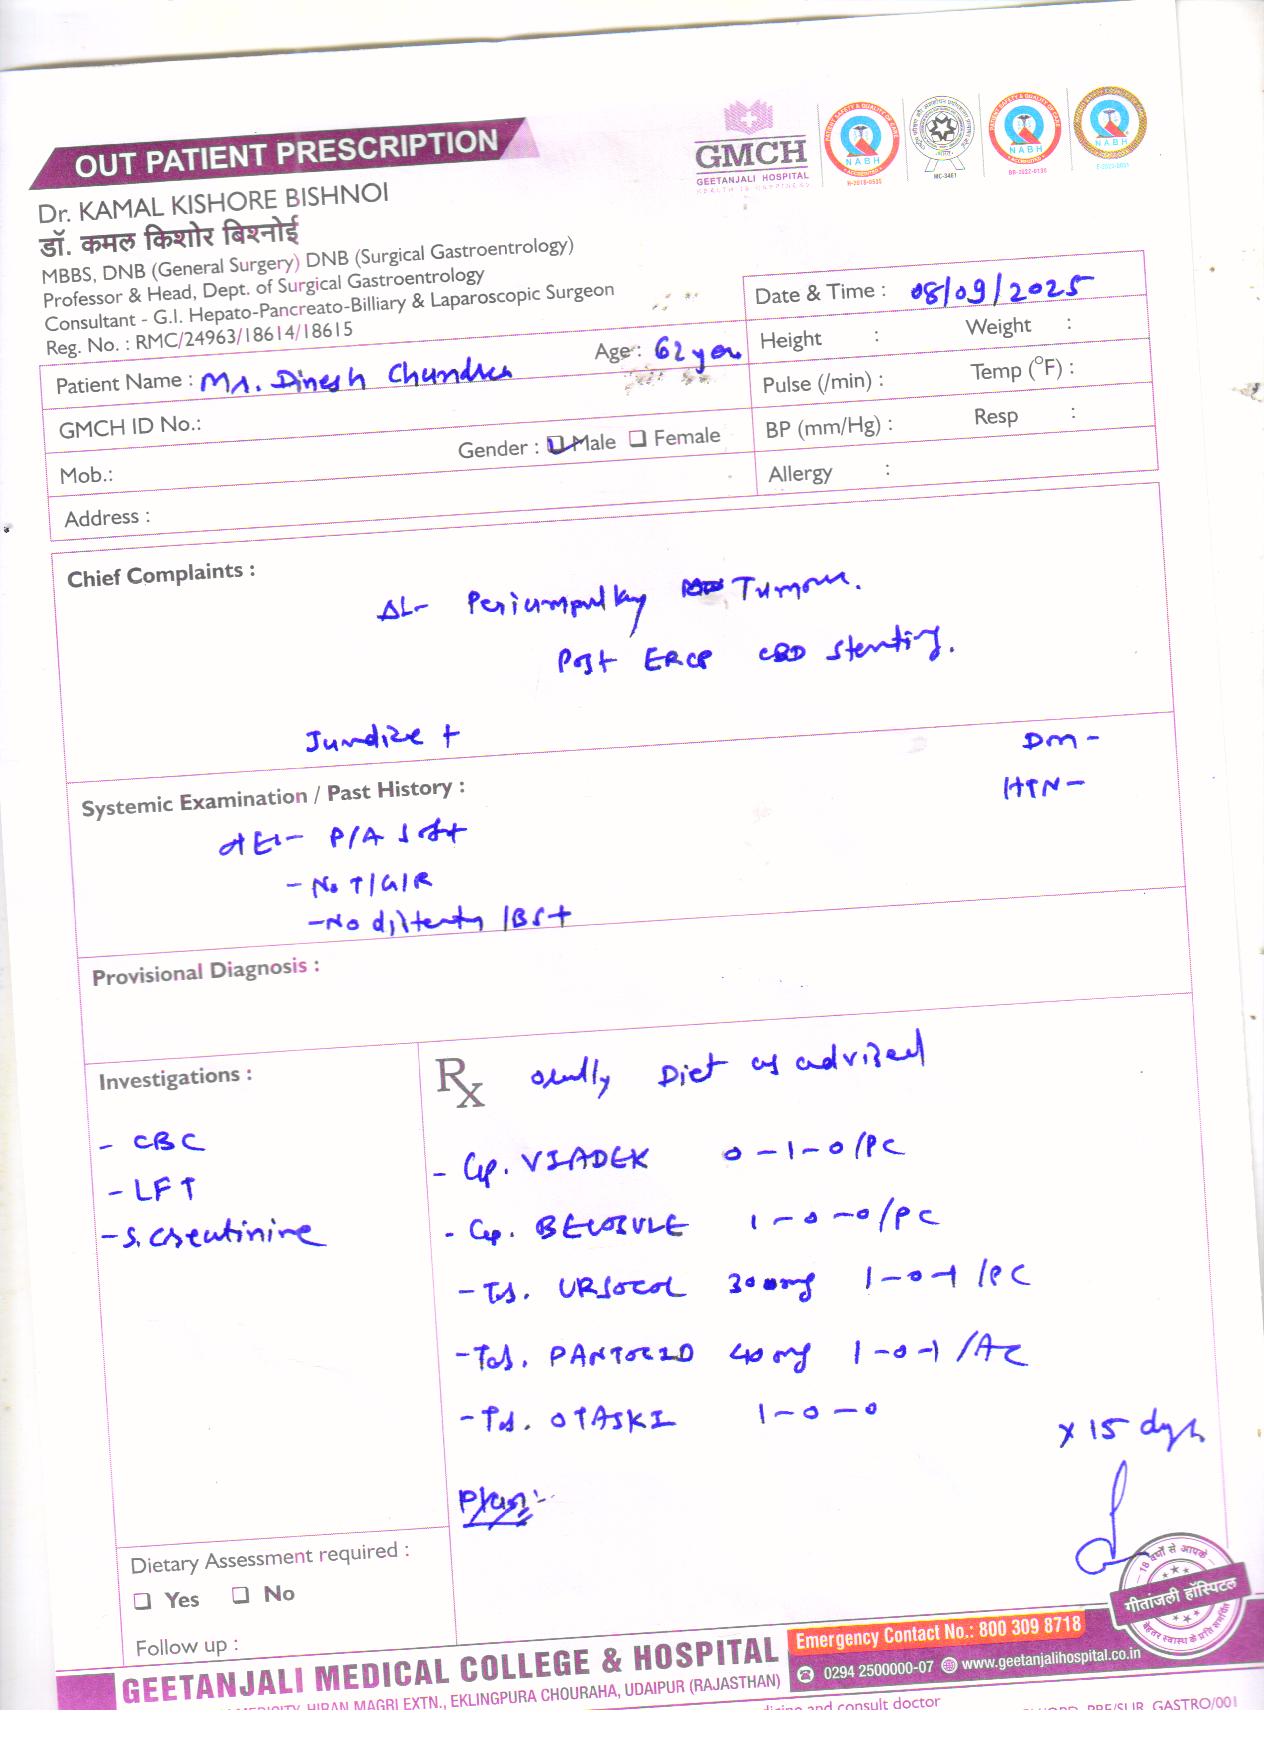 OUT PATIENT PRESCRIPTION
GMCH
GEETANJALI HOSPITAL
HEALTH IS HAPPINESS
NABH
H-2018-0535
MC-3461
NABH
NABH
Dr. KAMAL KISHORE BISHNOI
डॉ. कमल किशोर बिश्नोई
MBBS, DNB (General Surgery) DNB (Surgical Gastroentrology)
Professor & Head, Dept. of Surgical Gastroentrology
Consultant - G.I. Hepato-Pancreato-Billiary & Laparoscopic Surgeon
Reg. No. : RMC/24963/18614/18615
Date & Time : 08/09/2025
Height : Weight :
Pulse (/min) : Temp (°F) :
BP (mm/Hg) : Resp :
Allergy :
Patient Name : Mr. Dinesh Chandra Age : 62 year
GMCH ID No.:
Gender : Male Female
Mob.:
Address :
Chief Complaints :
Periampullary Tumour.
Post ERCP CBD Stenting.
Jundize +
DM -
HTN -
Systemic Examination / Past History :
P/A soft
- No T/G/R
- No /BS+
Provisional Diagnosis :
Investigations :
- CBC
- LFT
- S. Creatinine
Rx orally Diet as advised
- Cap. VIADEK 0-1-0/PC
- Cap. BECOSULE 1-0-0/PC
- Tab. URSOCOL 300mg 1-0-1/PC
- Tab. PANTOCID 40mg 1-0-1/AC
- Tab. OTASKI 1-0-0
x 15 days
Plan:-
Dietary Assessment required :
Yes No
Follow up :
18 वर्षों से आपके
गीतांजली हॉस्पिटल
बेहतर स्वास्थ के प्रति समर्पित
GEETANJALI MEDICAL COLLEGE & HOSPITAL
HIRAN MAGRI EXTN., EKLINGPURA CHOURAHA, UDAIPUR (RAJASTHAN)
Emergency Contact No.: 800 309 8718
0294 2500000-07 www.geetanjalihospital.co.in
and consult doctor
GASTRO/001